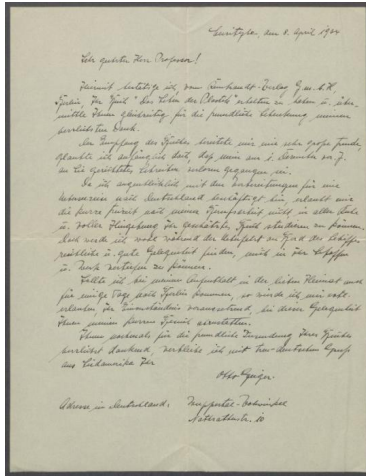 den 8. April 1924
Sehr geehrter Herr Professor!
Hiermit bestätige ich, vom Verlag G.m.b.H.
Berlin, Ihr Buch "Das Leben des erhalten zu haben u. über-
mittle Ihnen gleichzeitig für die freundliche meinen
herzlichsten Dank.
Der Empfang des Buches bereitete mir eine sehr große Freude,
glaubte ich anfänglich doch, daß mein am 1.
an Sie gerichtetes Schreiben verloren gegangen sei.
Da ich augenblicklich mit den Vorbereitungen für eine
nach Deutschland beschäftigt bin, erlaubt mir
die kurze Freizeit nicht, in aller Ruhe
u. voller Hingebung Ihr Buch studieren zu können.
Doch werde ich wohl während der an Bord des Schiffes
u. gute Gelegenheit finden, mich in Ihr Schaffen
u. Werk vertiefen zu können.
Sollte ich bei meinem Aufenthalt in der lieben Heimat auch
für einige Tage nach Berlin kommen, so würde ich mir
erlauben, Ihr Einverständnis voraussetzend, bei dieser Gelegenheit
Ihnen meinen kurzen Besuch abzustatten.
Ihnen nochmals für die freundliche Zusendung Ihres Buches
herzlichst dankend, verbleibe ich mit treu-deutschem Gruß
aus Südamerika Ihr
Otto Geiger.
Adresse in Deutschland:
10